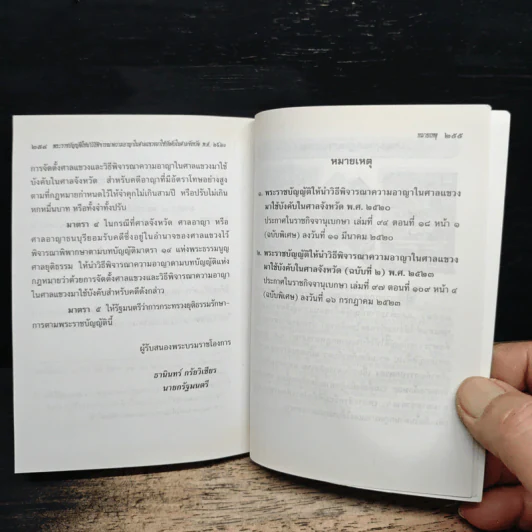 ๒๕๔ พระราชบัญญัติให้นำวิธีพิจารณาความอาญาในศาลแขวงมาใช้บังคับในศาลจังหวัด พ.ศ. ๒๕๒๐
การจัดตั้งศาลแขวงและวิธีพิจารณาความอาญาในศาลแขวงมาใช้
บังคับในศาลจังหวัด สำหรับคดีอาญาที่มีอัตราโทษอย่างสูง
ตามที่กฎหมายกำหนดไว้ให้จำคุกไม่เกินสามปี หรือปรับไม่เกิน
หกหมื่นบาท หรือทั้งจำทั้งปรับ
มาตรา ๔ ในกรณีที่ศาลจังหวัด ศาลอาญา หรือ
ศาลอาญาธนบุรียอมรับคดีซึ่งอยู่ในอำนาจของศาลแขวงไว้
พิจารณาพิพากษาตามบทบัญญัติมาตรา ๑๔ แห่งพระธรรมนูญ
ศาลยุติธรรม ให้นำวิธีพิจารณาความอาญาตามบทบัญญัติแห่ง
กฎหมายว่าด้วยการจัดตั้งศาลแขวงและวิธีพิจารณาความอาญา
ในศาลแขวงมาใช้บังคับสำหรับคดีดังกล่าว
มาตรา ๕ ให้รัฐมนตรีว่าการกระทรวงยุติธรรมรักษา-
การตามพระราชบัญญัตินี้
ผู้รับสนองพระบรมราชโองการ
ธานินทร์ กรัยวิเชียร
นายกรัฐมนตรี
หมายเหตุ ๒๕๕
หมายเหตุ
๑. พระราชบัญญัติให้นำวิธีพิจารณาความอาญาในศาลแขวง
มาใช้บังคับในศาลจังหวัด พ.ศ. ๒๕๒๐
ประกาศในราชกิจจานุเบกษา เล่มที่ ๙๔ ตอนที่ ๑๘ หน้า ๑
(ฉบับพิเศษ) ลงวันที่ ๑๑ มีนาคม ๒๕๒๐
๒. พระราชบัญญัติให้นำวิธีพิจารณาความอาญาในศาลแขวง
มาใช้บังคับในศาลจังหวัด (ฉบับที่ ๒) พ.ศ. ๒๕๒๓
ประกาศในราชกิจจานุเบกษา เล่มที่ ๙๗ ตอนที่ ๑๐๙ หน้า ๔
(ฉบับพิเศษ) ลงวันที่ ๑๖ กรกฎาคม ๒๕๒๓